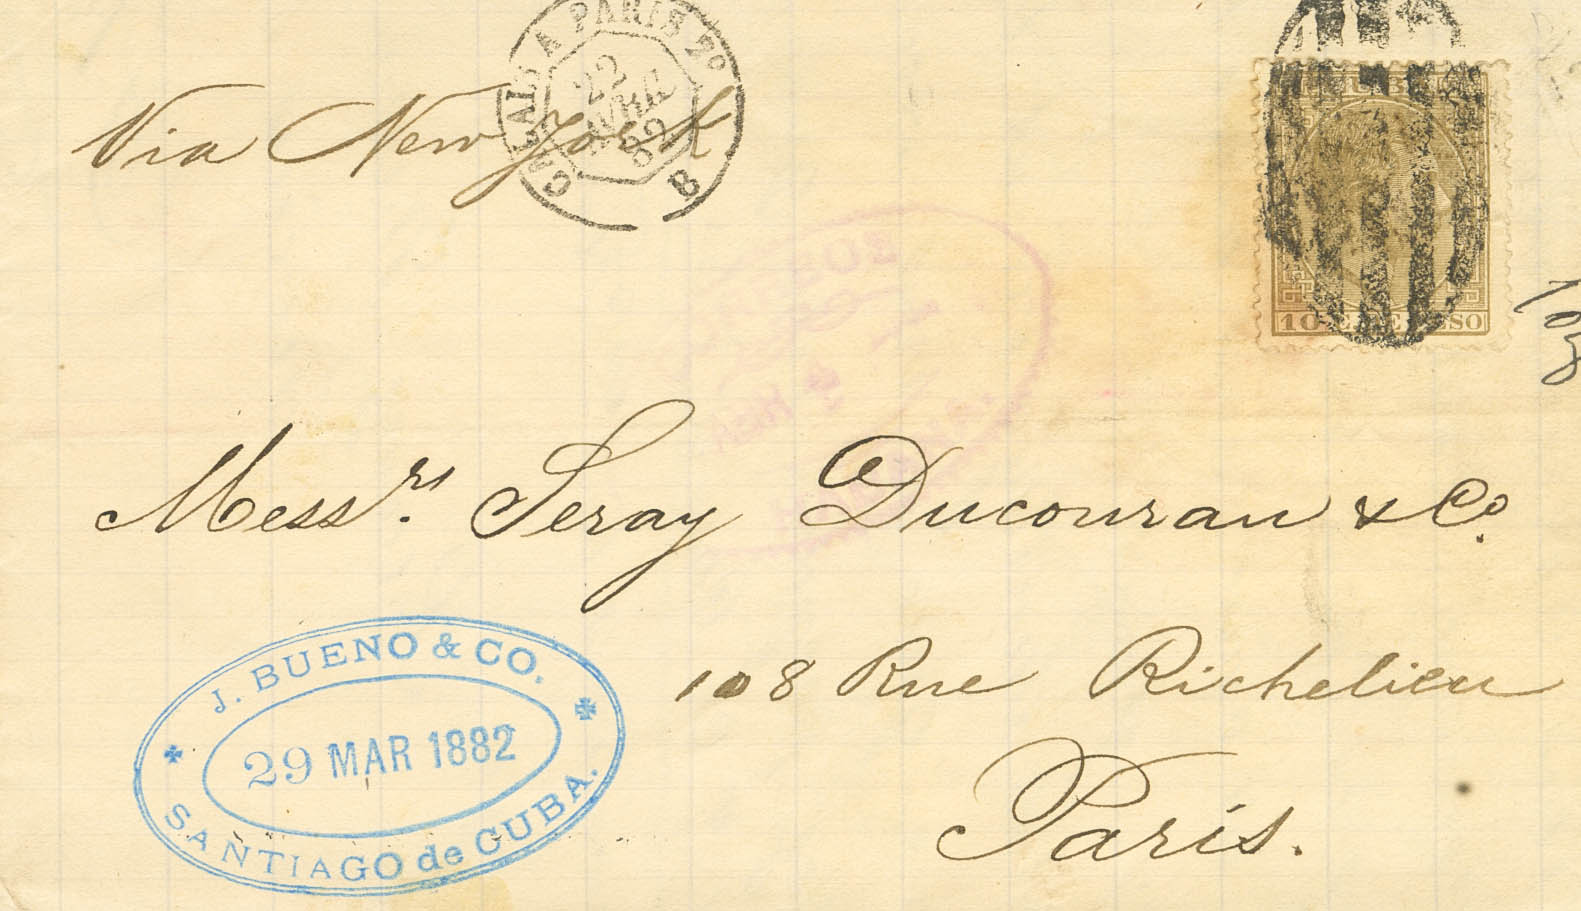 CALAIS A PARIS 2º
22
AVRIL
82
B
Via New York
CUBA
10 C. DE PESO
108
Messrs. Seray Ducouran & Co.
108 Rue Richelieu
Paris.
J. BUENO & CO.
29 MAR 1882
SANTIAGO de CUBA.